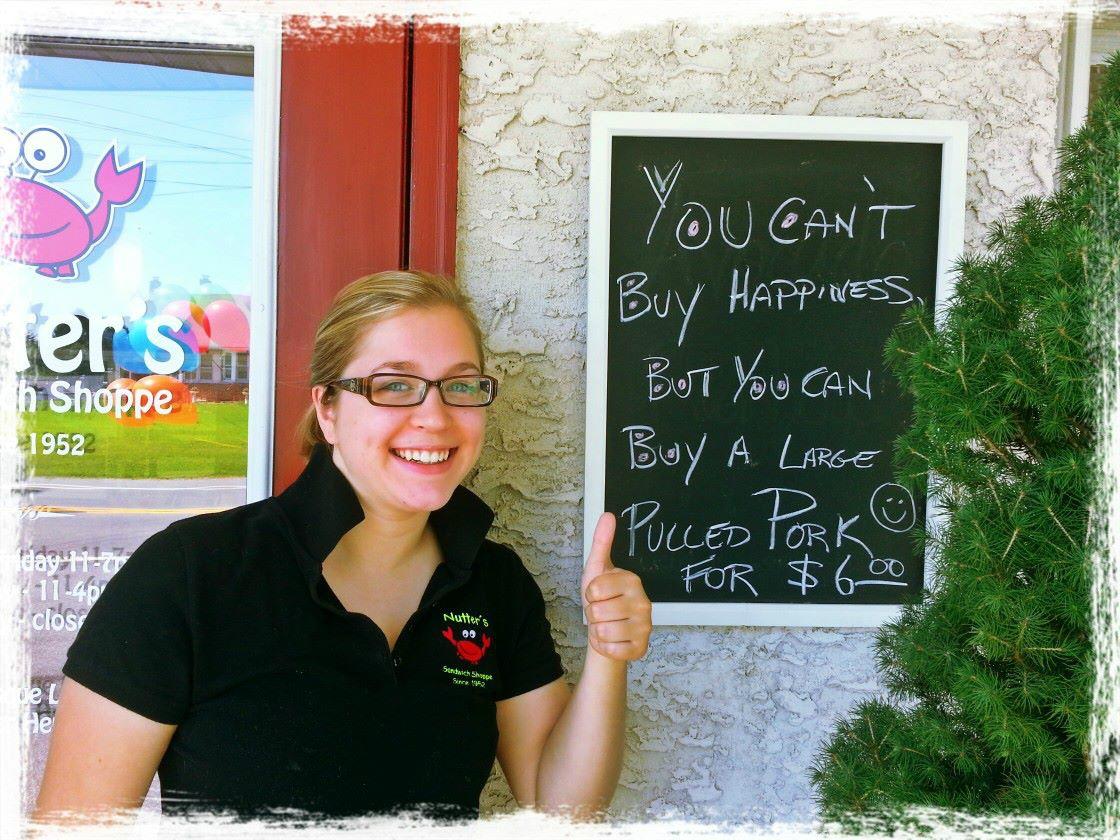 ter's
h Shoppe
1952
11-7
11-4p
close
You Can't
Buy Happiness,
But You Can
Buy A Large
Pulled Pork
For $6.00
Nutter's
Sandwich Shoppe
Since 1952